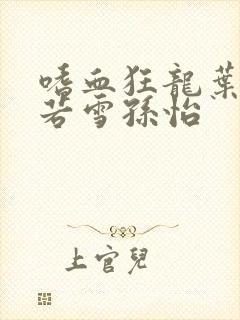 嗜血狂龍葉
若雪孫怡
上官兒